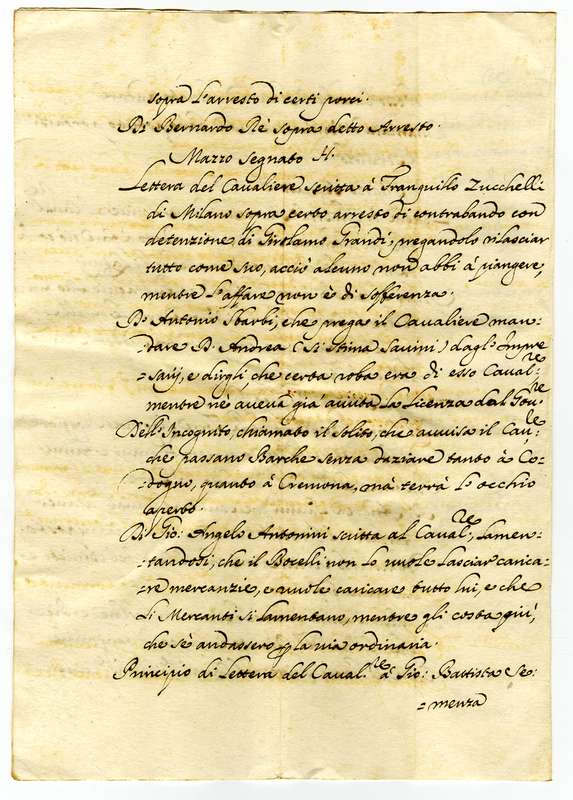 sopra l'arresto di certi porci.
Di Bernardo Rè sopra detto Arresto.
Mazzo segnato H.
Lettera del Cavaliere scritta à Tranquillo Zucchelli
di Milano sopra certo arresto di contrabando con
detenzione di Girolamo Grandi, pregandolo rilasciar
tutto come suo, acciò alcuno non abbi à piangere,
mentre l'affare non è di sofferenza.
D. Antonio Sbarbi, che prega il Cavaliere man=
=dare D. Andrea (si stima Savini) dagl'Impre
=sarij, e dirgli, che certa roba era di esso Caval.re
mentre nè aveva già avuta la licenza dal Gov.re
Dell'Incognito, chiamato il solito, che avvisa il Cav.re
che passano Barche senza daziare tanto à Co=
=dogno, quanto à Cremona, mà terrà l'occhio
aperto.
Di Gio: Angelo Antonini scritta al Caval.re, lamen=
=tandosi, che il Bocelli non lo vuole lasciar carica=
=re mercanzie, e vuole caricare tutto lui, e che
li Mercanti si lamentano, mentre gli costa più,
che sè andassero p la via ordinaria.
Principio di Lettera del Caval.re à Gio: Battista Se=
=menza